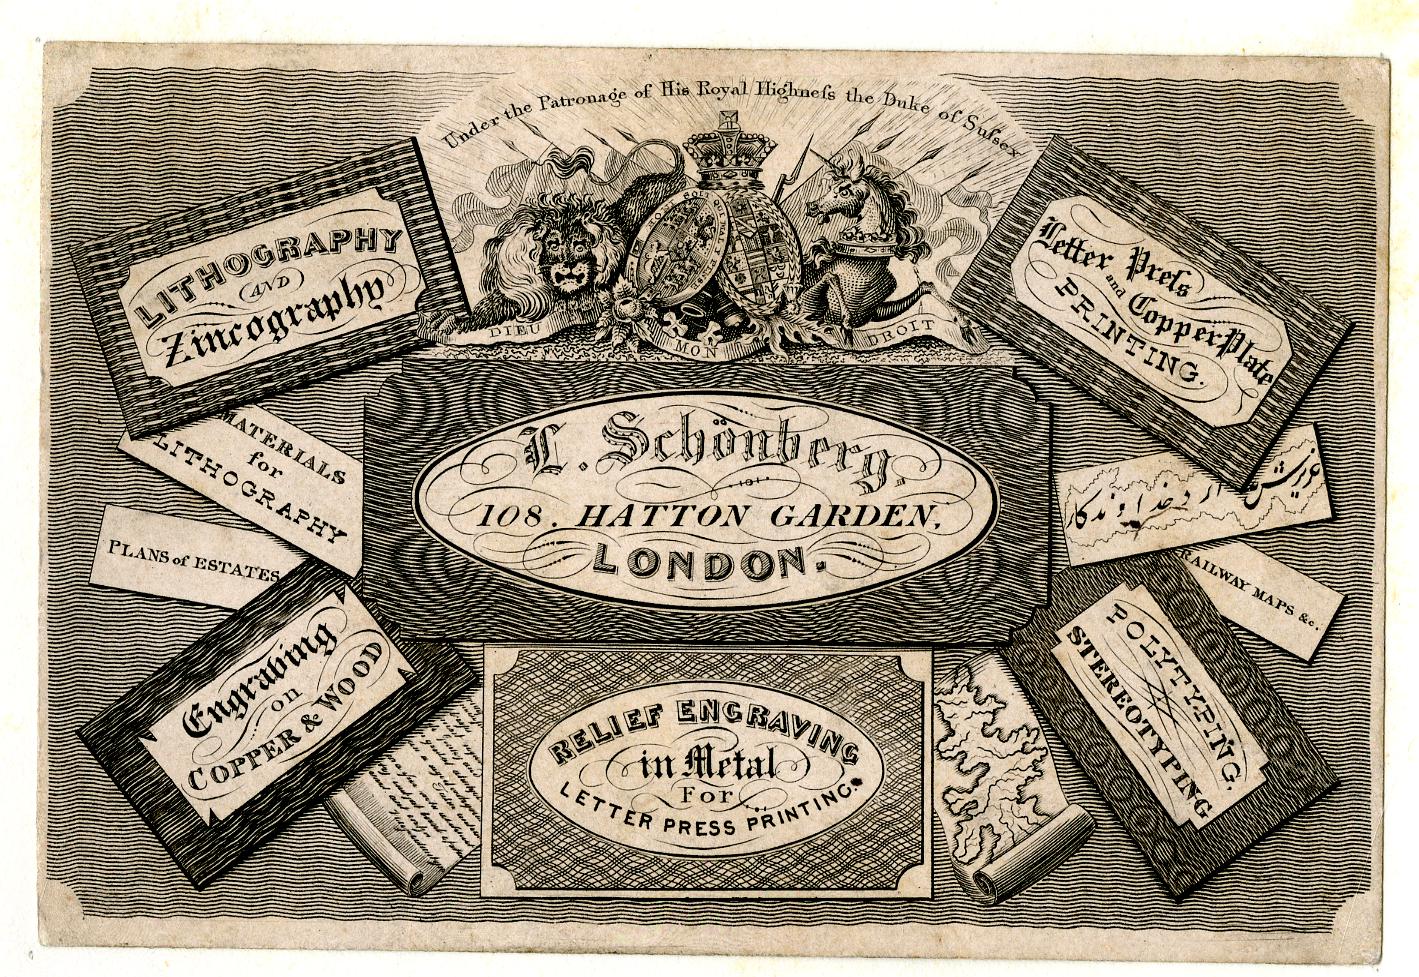 Under the Patronage of His Royal Highneſs the Duke of Suſsex
DIEU
MON
DROIT
LITHOGRAPHY
AND
Zincography
Letter Preſs
and Copper Plate
PRINTING.
MATERIALS
for
LITHOGRAPHY
PLANS of ESTATES
L. Schönberg,
108. HATTON GARDEN,
LONDON.
RAILWAY MAPS &c.
Engraving
on
COPPER & WOOD
RELIEF ENGRAVING
in Metal
For
LETTER PRESS PRINTING.
POLYTYPING,
STEREOTYPING